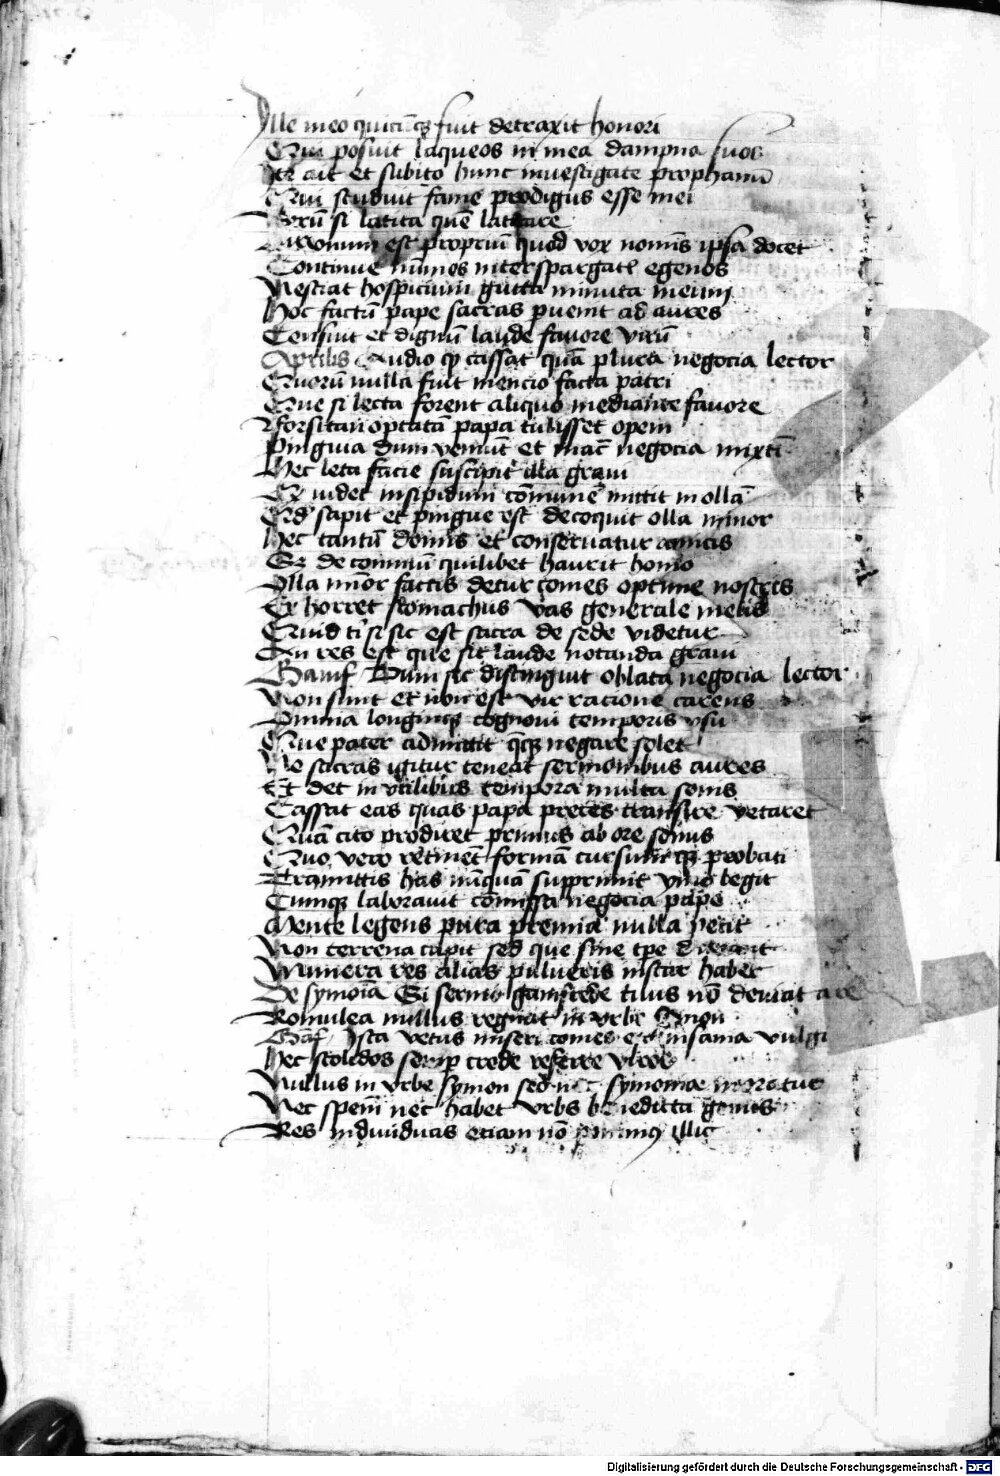 Ille meo quicūq; fuit detraxit honori
Qui posuit laqueos in mea dampna suos
ait et subito hunc inuestigate prophanū
Qui studuit fame prodigus esse mei
si latita quē latitare
est propriū quod vox nominis ipsa docet
Continue nūmos interspargat egenos
Nesciat hospicium gutta minuta meum
Hoc factū pape sacras puenit ad aures
Censuit et dignū laude fauore virū
Aprilis Audio q cassat quā plura negocia lector
Quorū nulla fuit mencio facta patri
Que si lecta forent aliquo mediante fauore
Forsitan optatā papa tulisset opem
Pinguia dum veniūt et mac negocia mixti
Hec leta facie suscipit illa graui
Et videt insipidum cōmune mittit in ollā
Qd sapit et pingue est decoquit olla minor
Hec tantū domis et conseruatur amicis
De cōmuni quilibet haurit homo
Olla minor factis detur comes optime nostris
Et horret stomachus vas generale meus
Quid ti si sic est sacra de sede videtur
An res est que sit laude notanda graui
Gamf Dum sic distinguit oblata negocia lector
Non sunt et ibi est vir racione carens
Omnia longinq; cognoui temporis vsu
Que pater admittit q̄q; negare solet
Ne sacras igitur teneat sermonibus aures
Et det in vtilibus tempora multa senis
Cassat eas quas papa preces transire vetaret
Quā cito prodiret primus ab ore sonus
Quo vero retinēt formā cursumq; probati
Tramittis has nūquā supprimit ymo legit
Cumq; laborauit cōmissa negocia pape
Mente legens pura premia nulla petit
Non terrena capit sed que sine tpe
Munera res alias pulueris instar habet
De symoīa Si sermo gamfrede tuus nō deuiat a re
Romulea nullus regnat in vrbe Symon
Gāf Ista vetus miseri comes est insania vulgi
Hec stolidos semp crede referre viros
Nullus in vrbe symon sed nec symonia
Nec spem nec habet vrbs benedicta genus
Res indiuiduas eciam nō illic
Digitalisierung gefördert durch die Deutsche Forschungsgemeinschaft - DFG